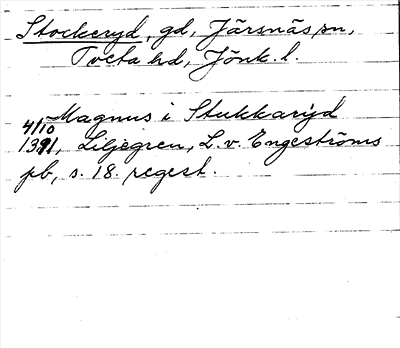 Stockeryd, gd, Järsnäs sn,
Tveta hd, Jönk. l.
Magnus i Stukkaryd
4/10
1391, Liljegren, L. v. Engeströms
pb, s. 18. regest.